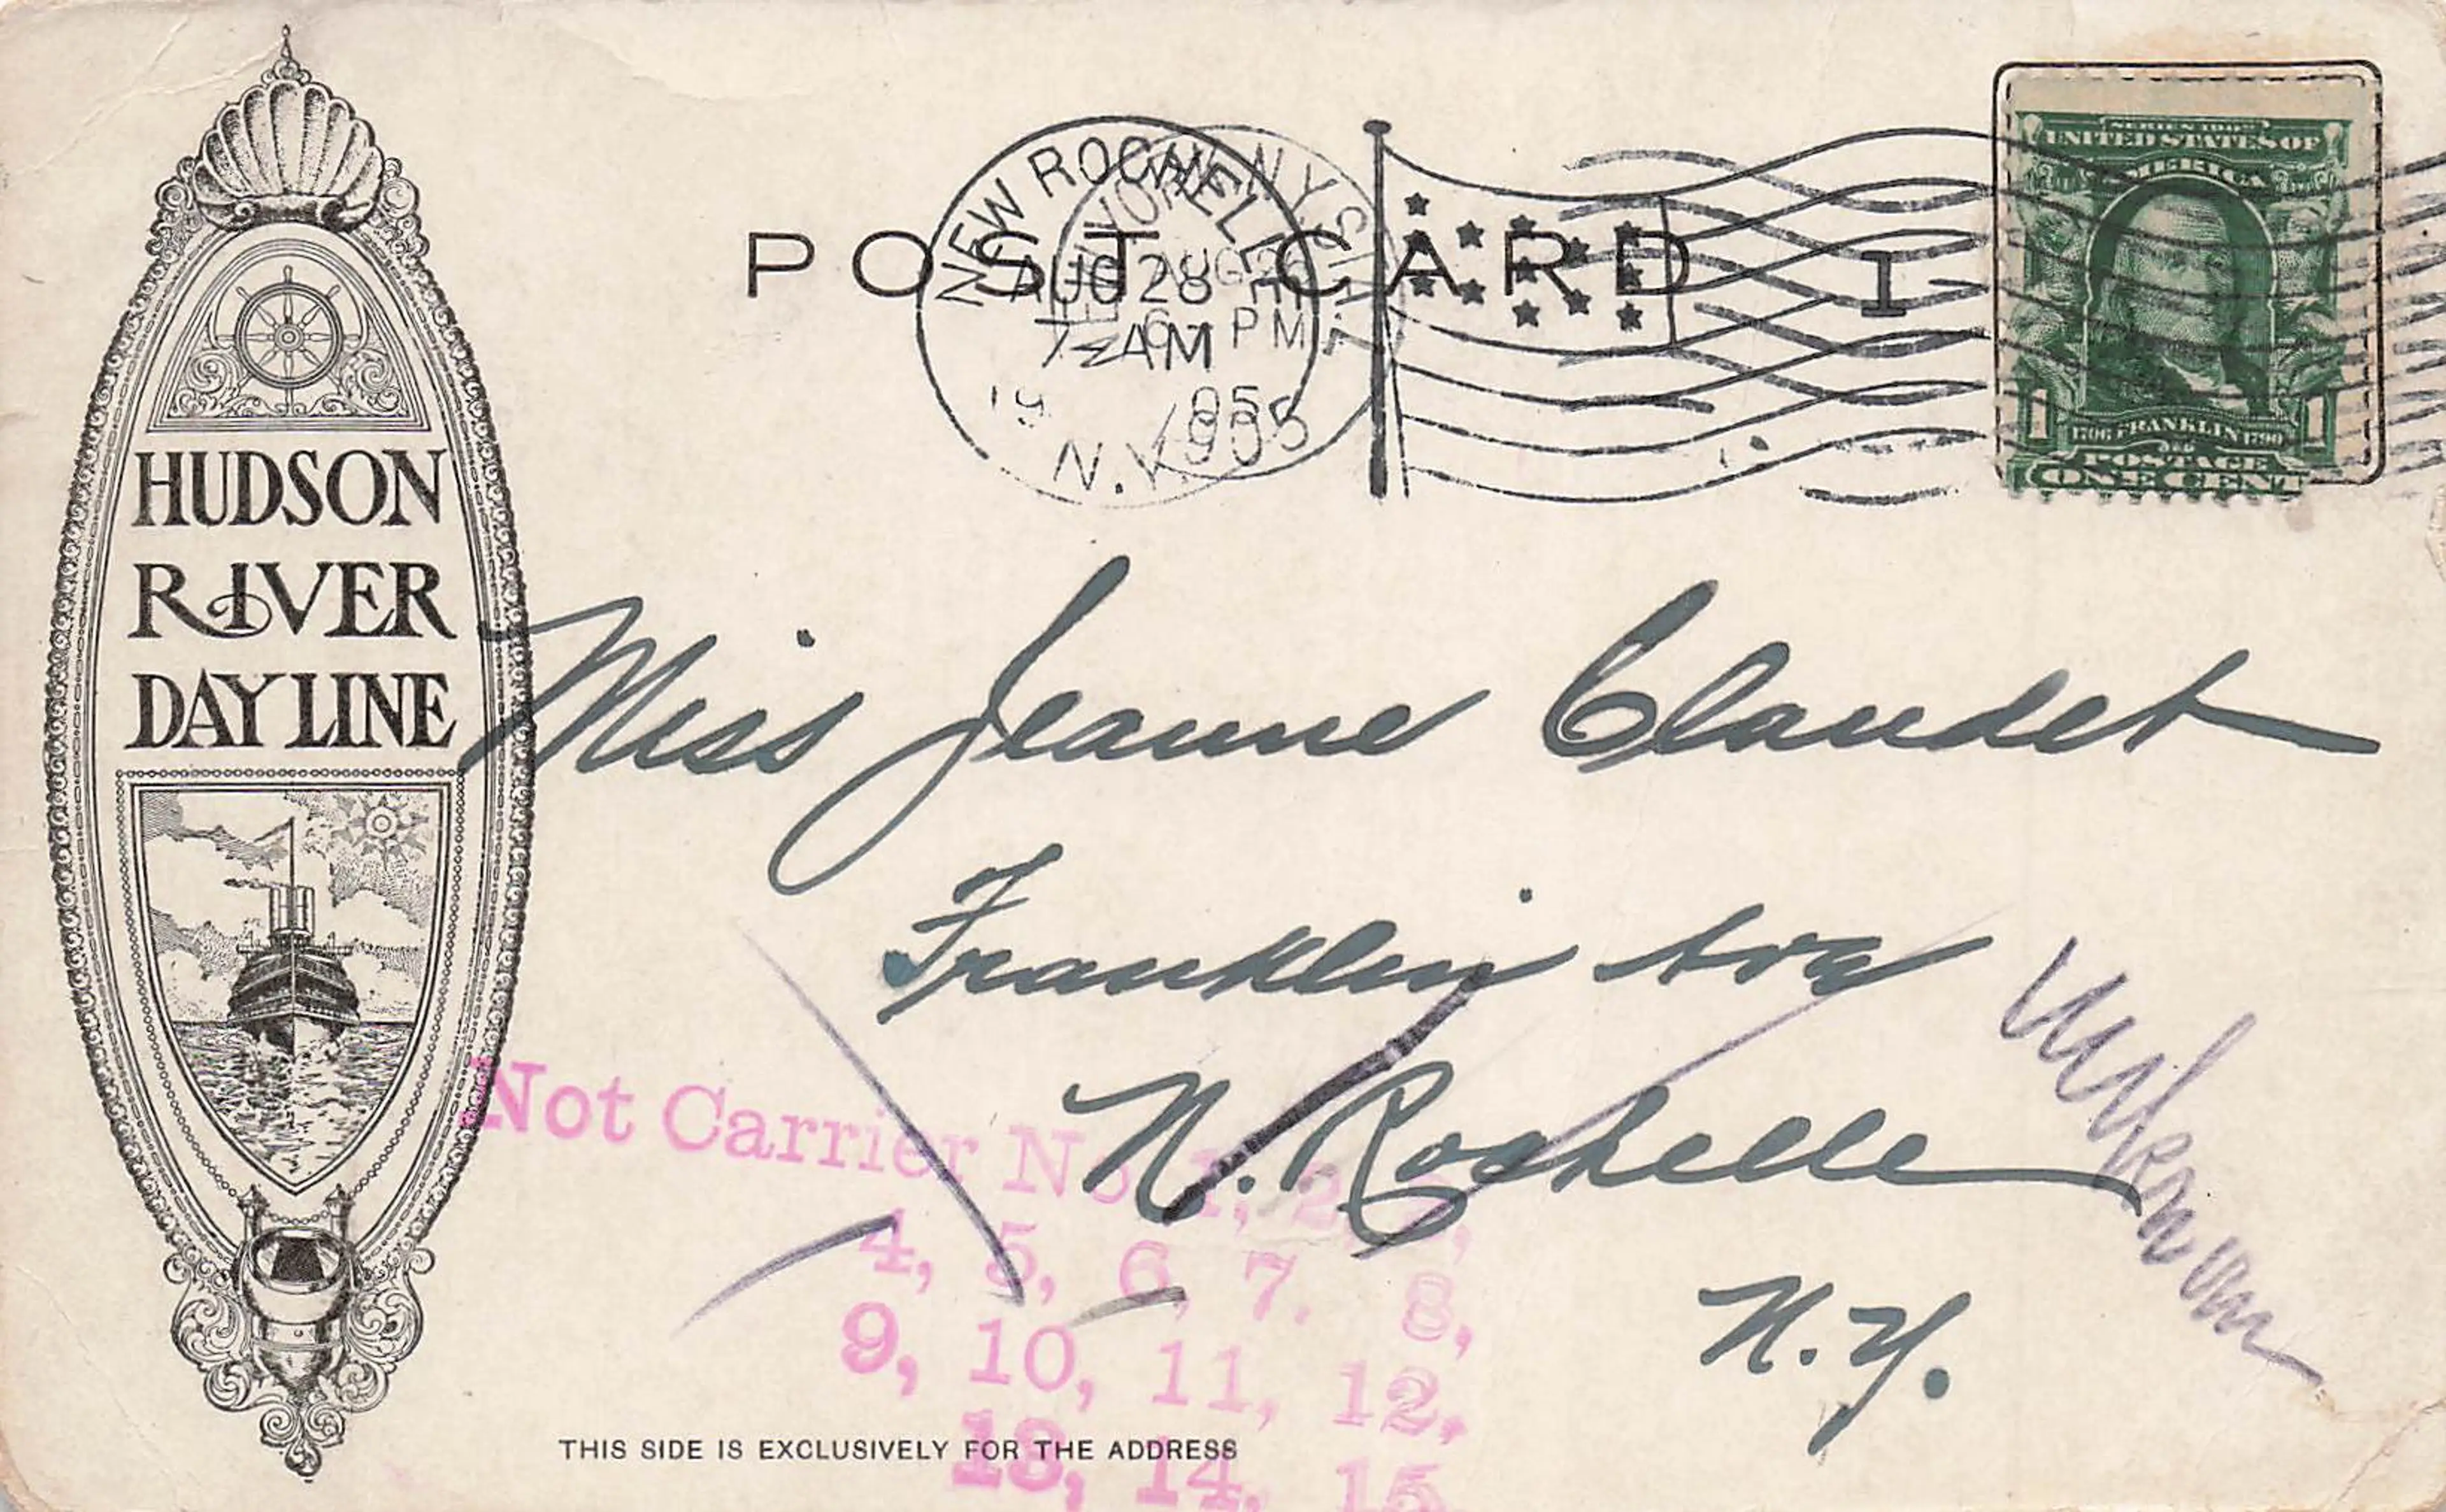 HUDSON
RIVER
DAY LINE
POST CARD
NEW ROCHELLE
AUG 28
7 AM
1905
N.Y.
NEW YORK, N.Y. STA.
AUG 26
6 PM
1905
1
SERIES 1902
UNITED STATES OF
AMERICA
1 1
1706 FRANKLIN 1790
POSTAGE
ONE CENT
Miss Jeanne Claudet
Franklin Ave
N. Rochelle
N.Y.
Not Carrier No. 1, 2, 3,
4, 5, 6, 7, 8,
9, 10, 11, 12,
13, 14, 15
THIS SIDE IS EXCLUSIVELY FOR THE ADDRESS